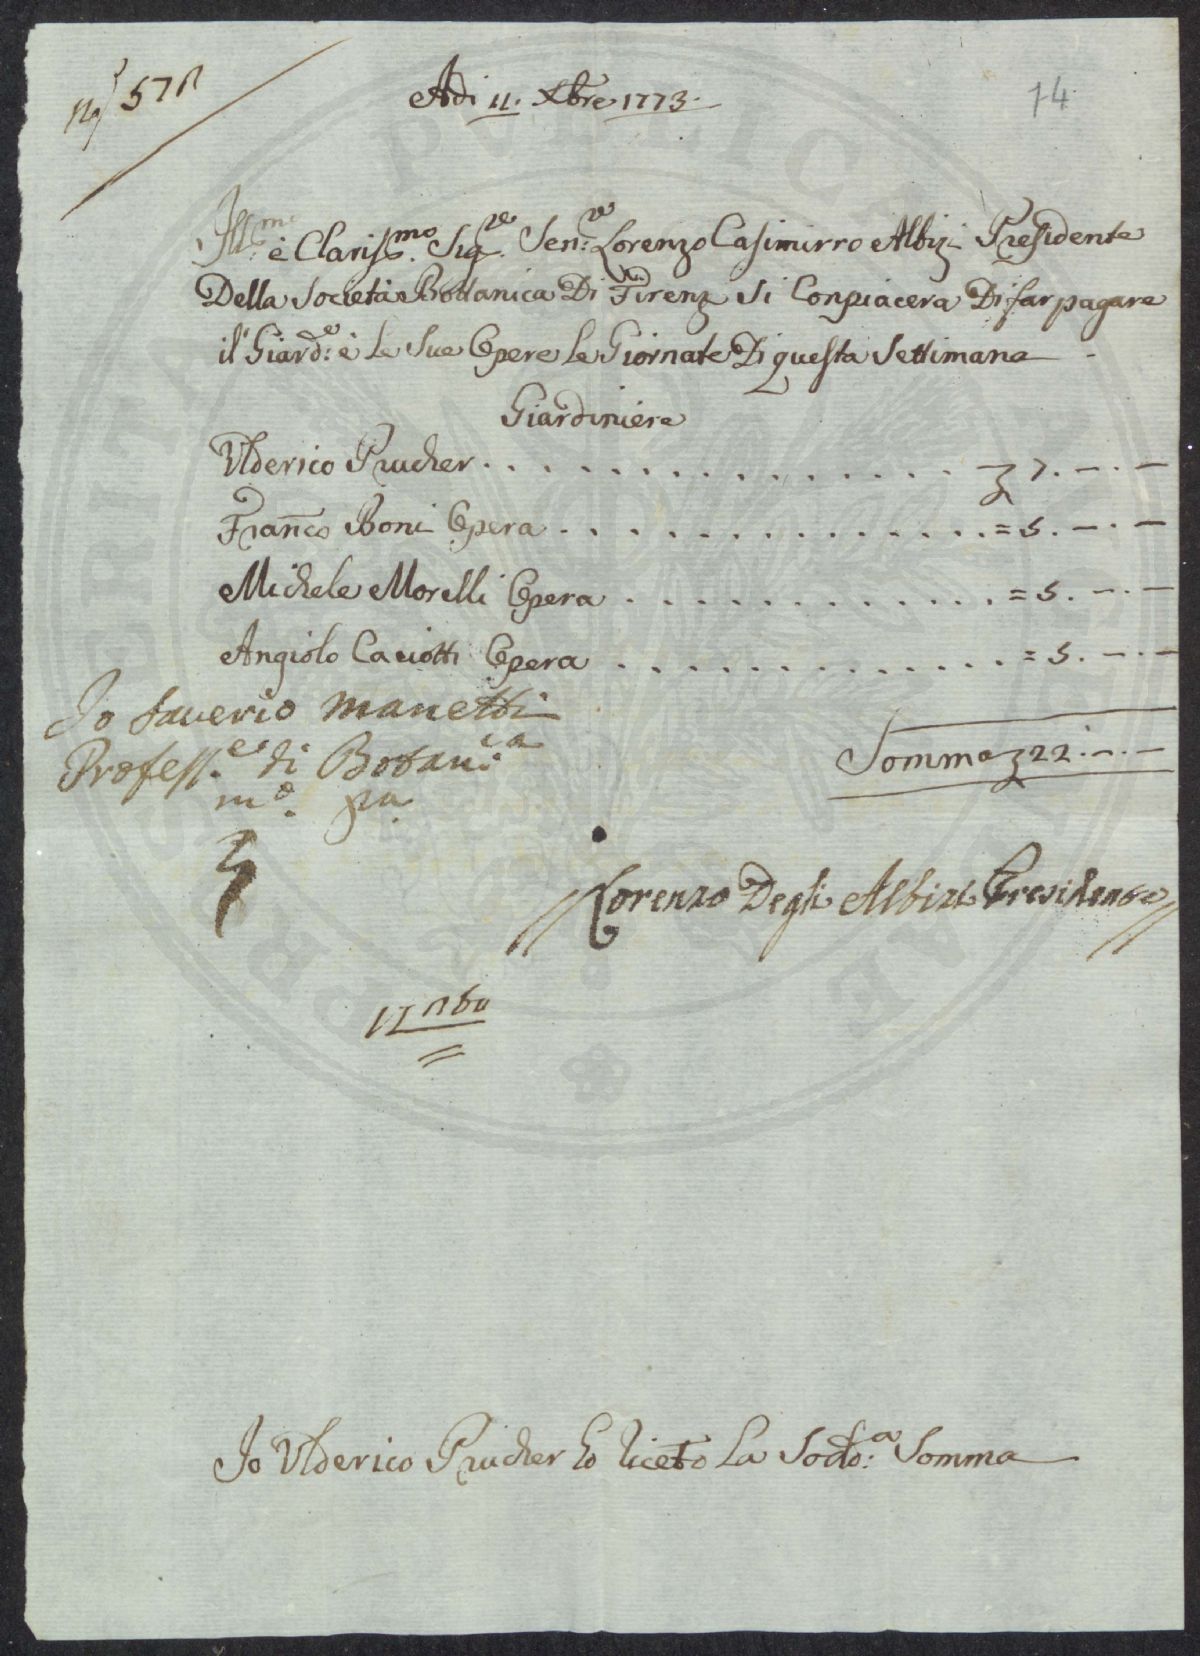 Adi 11. Xbre 1773.
74
Ill:mo e Clariss:mo Sig:re Sen:re Lorenzo Casimirro Albizi Presidente
Della Società Bottanica Di Firenz Si Conpiacera Di far pagare
il Giard:e e le Sue Opere le Giornate Di questa Settimana
Giardiniere
Ulderico Prucher . . . . . . . . . . . . . . 7. — . —
Franco Boni Opera . . . . . . . . . . . . . . = 5. — . —
Michele Morelli Opera . . . . . . . . . . . . = 5. — . —
Angiolo Caciotti Opera . . . . . . . . . . . . = 5. — . —
Io Saverio Manetti
Somma 22. — . —
Profess.e di Botanica
mo. pa
Lorenzo Degli Albizi Presidente
Io Ulderico Prucher ho riceuto La Sodd:a Somma